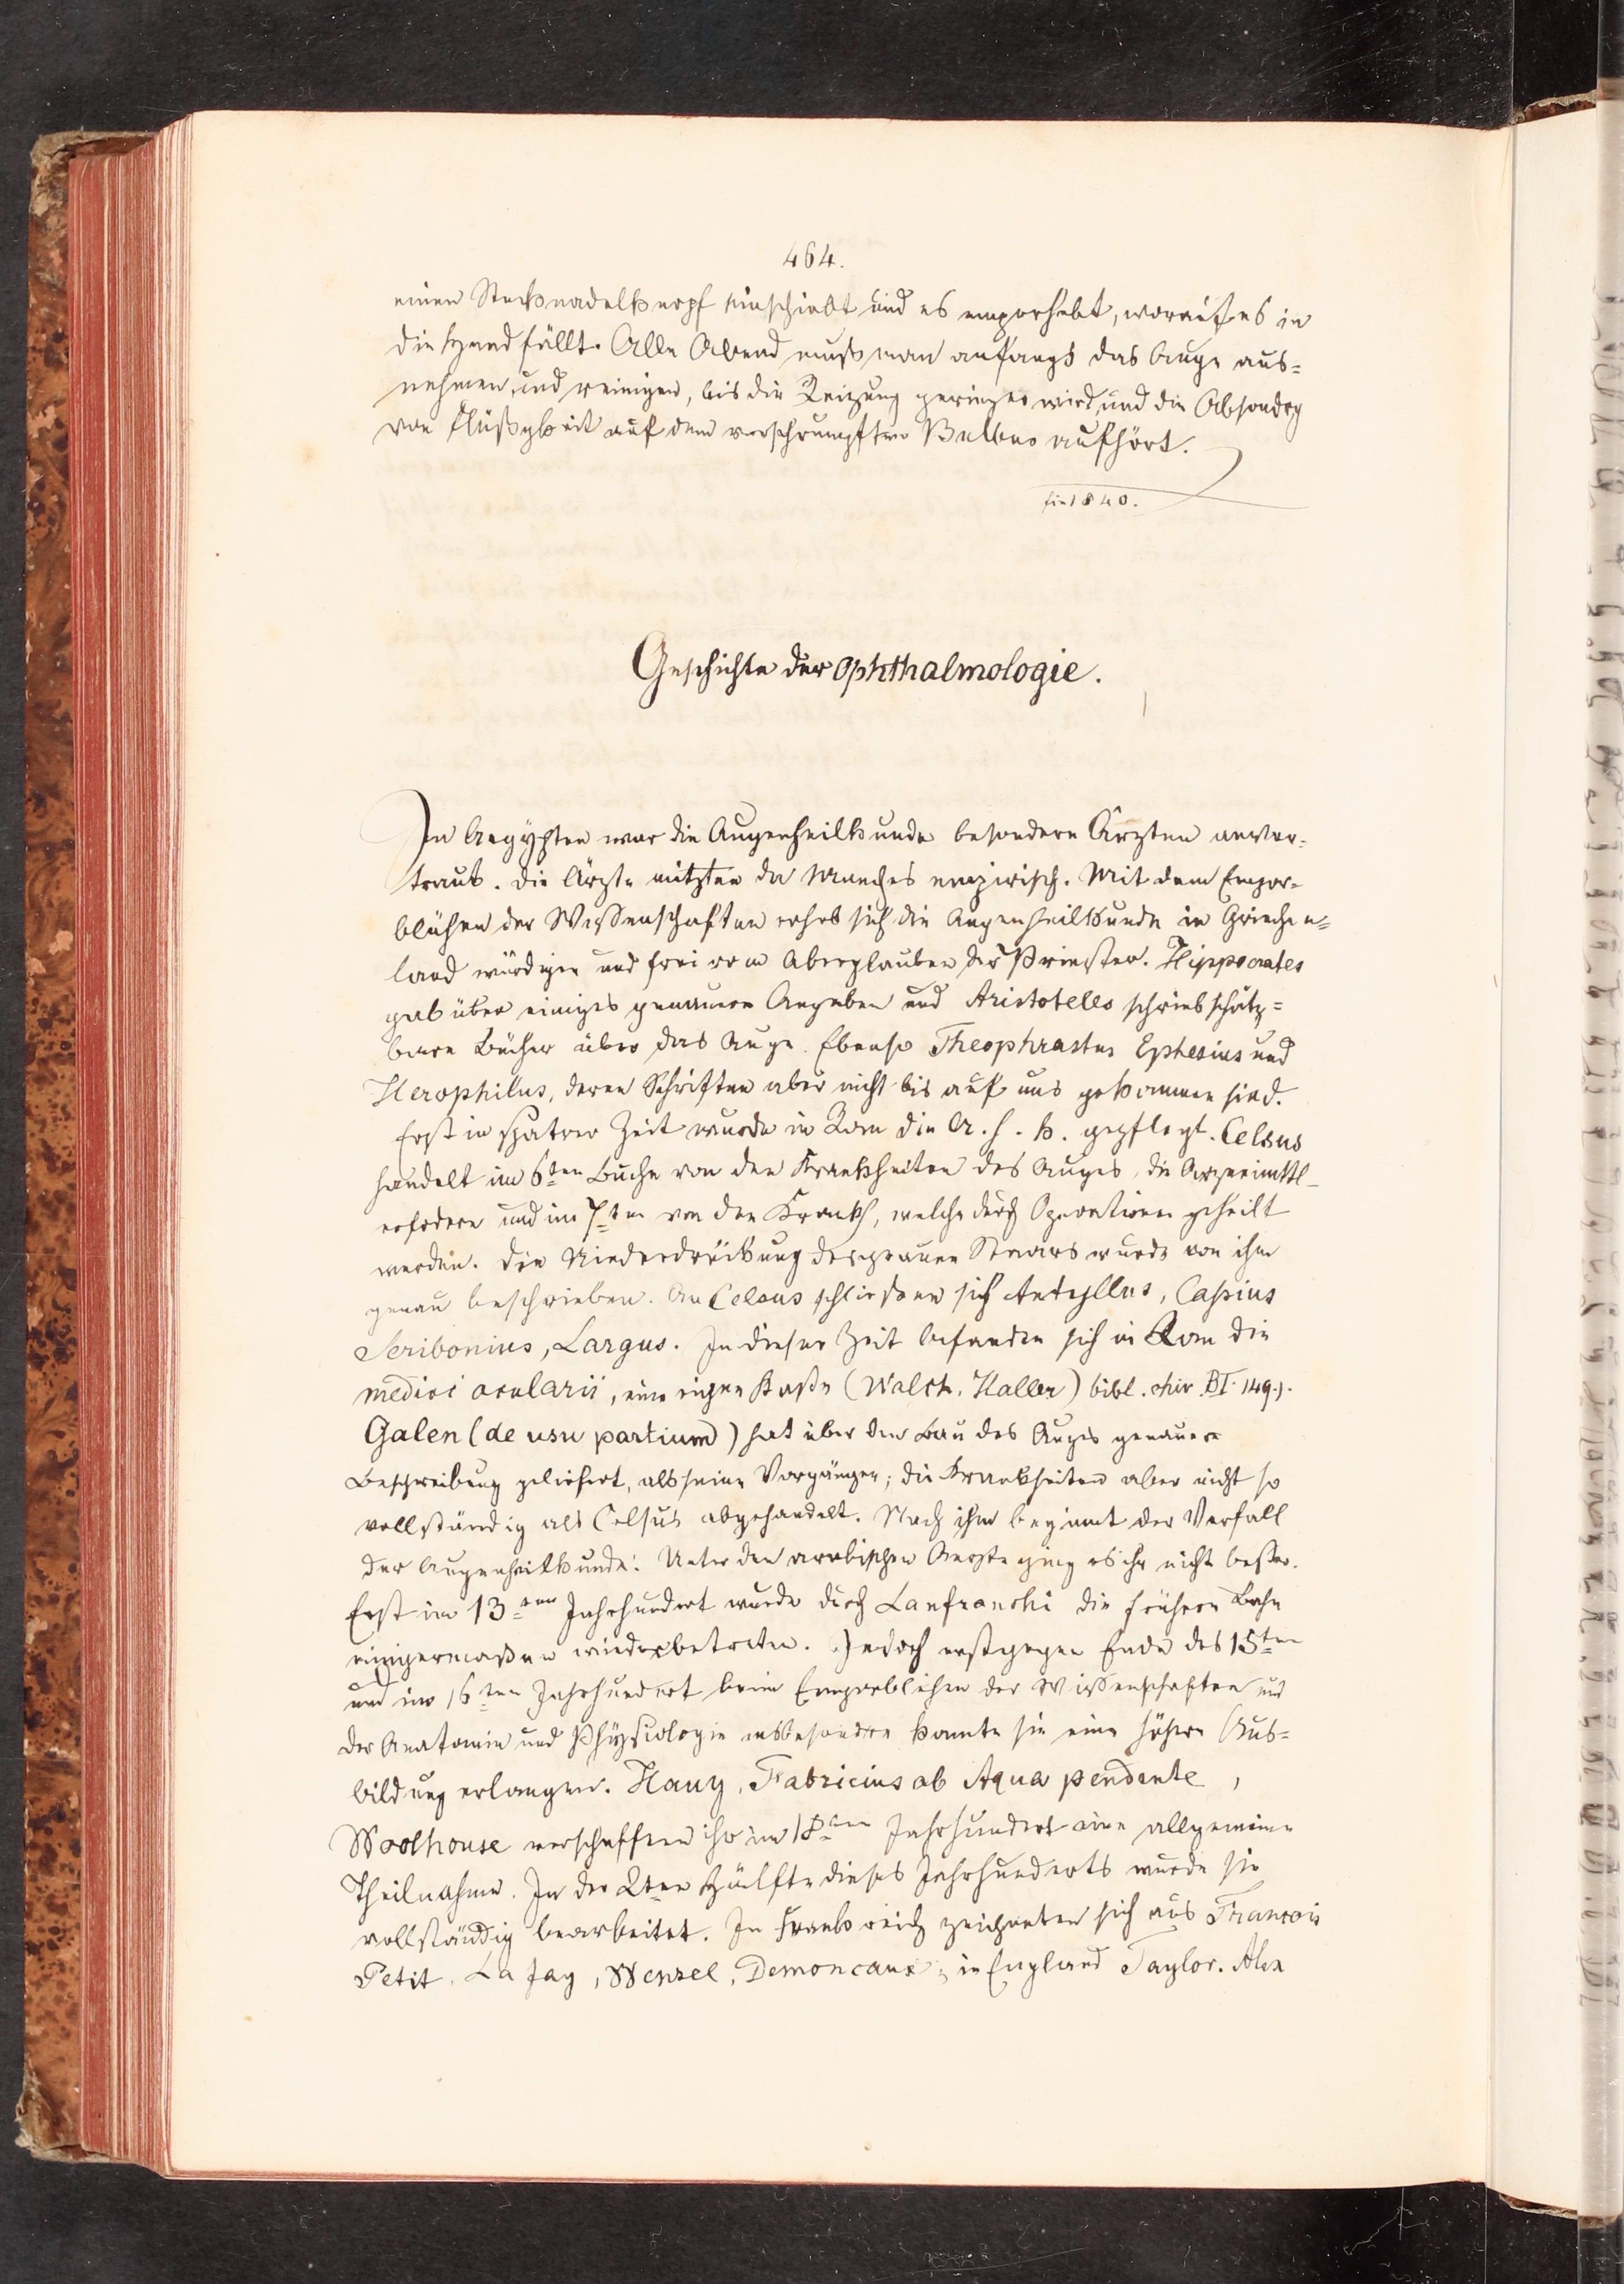 464.
einen Stecknadelknopf hinschiebt und es emporhebt, worauf es in
die Hand fällt. Alle Abend muß man anfangs das Auge aus=
nehmen und reinigen, bis die Reizung geringer wird und die Absondrg
von Flüßgkeit auf dem verschrumpften Bulbus aufhört.
fin 1840.
Geschichte der Ophthalmologie.
In Aegypten war die Augenheilkunde besondern Ärzten anver-
traut. Die Ärzte nützten da Manches empirisch. Mit dem Empor-
blühen der Wissenschaften erhob sich die Augenheilkunde in Griechen=
land würdiger und frei vom Aberglauben der Priester. Hippocrates
gab über einiges genauere Angaben und Aristoteles schrieb schätz=
bare Bücher über das Auge. Ebenso Theophrastus Ephesius und
Herophilus, deren Schriften aber nicht bis auf uns gekommen sind.
Erst in spätrer Zeit wurde in Rom die A. h. k. gepflegt. Celsus
handelt im 6ten Buche von den Krankheiten des Auges, die Arzneimttl
erfodern und im 7ten von den Krankh, welche durch Operationen geheilt
werden. Die Niederdrückung des grauen Staars wurde von ihm
genau beschrieben. An Celsus schließen sich Antyllus, Cassius
Scribonius, Largus. In dieser Zeit befanden sich in Rom die
medici ocularii, eine eigne Kaste (Walch, Haller) bibl. chir. BI. 149.).
Galen (de usu partium) hat über den Bau des Auges genauere
Beschreibung geliefert, als seine Vorgänger; die Krankheiten aber nicht so
vollständig als Celsus abgehandelt. Nach ihm beginnt der Verfall
der Augenheilkunde. Unter den arabischen Aerzte ging es ihr nicht beßer.
Erst im 13ten Jahrhundert wurde durch Lanfranchi die frühere Bahn
einigermaßen wiederbetreten. Jedoch erst gegen Ende des 15ten
und im 16ten Jahrhundert beim Emporblühen der Wissenschaften und
der Anatomie und Physiologie insbesondere konnte sie eine höhere Aus=
bildung erlangen. Hauy, Fabricius ab Aqua pendente,
Woolhouse verschafften ihr im 18ten Jahrhundert eine allgemeine
Theilnahme. In der 2ten Hälfte dieses Jahrhunderts wurde sie
vollständig bearbeitet. In Frankreich zeichneten sich aus Francois
Petit, La Fay, Wenzel, Demoncaux; in England Taylor. Alex